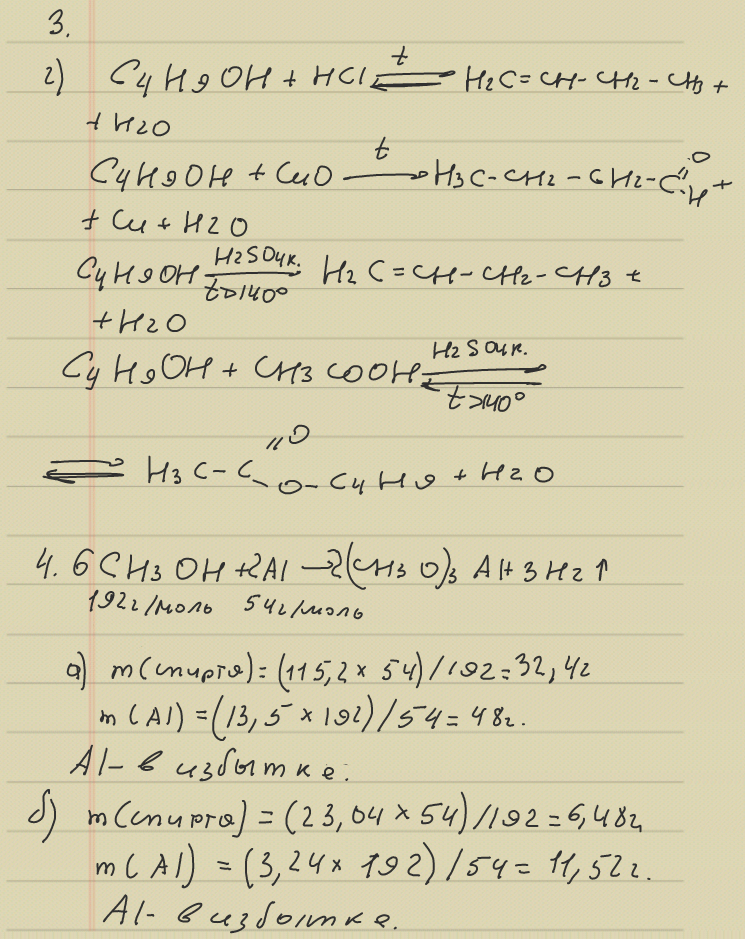 3.
г) C4H9OH + HCl ⇌ t H2C=CH-CH2-CH3 +
+ H2O
C4H9OH + CuO → t H3C-CH2-CH2-C=O H +
+ Cu + H2O
C4H9OH H2SO4к. t>140° H2C=CH-CH2-CH3 +
+ H2O
C4H9OH + CH3COOH ⇌ H2SO4к. t>140°
⇌ H3C-C=O -O-C4H9 + H2O
4. 6CH3OH + 2Al → 2(CH3O)3Al + 3H2↑
192г/моль 54г/моль
а) m(спирта) = (115,2 × 54)/192 = 32,4г
m(Al) = (13,5 × 192)/54 = 48г.
Al - в избытке.
б) m(спирта) = (23,04 × 54)/192 = 6,48г
m(Al) = (3,24 × 192)/54 = 11,52г.
Al - в избытке.